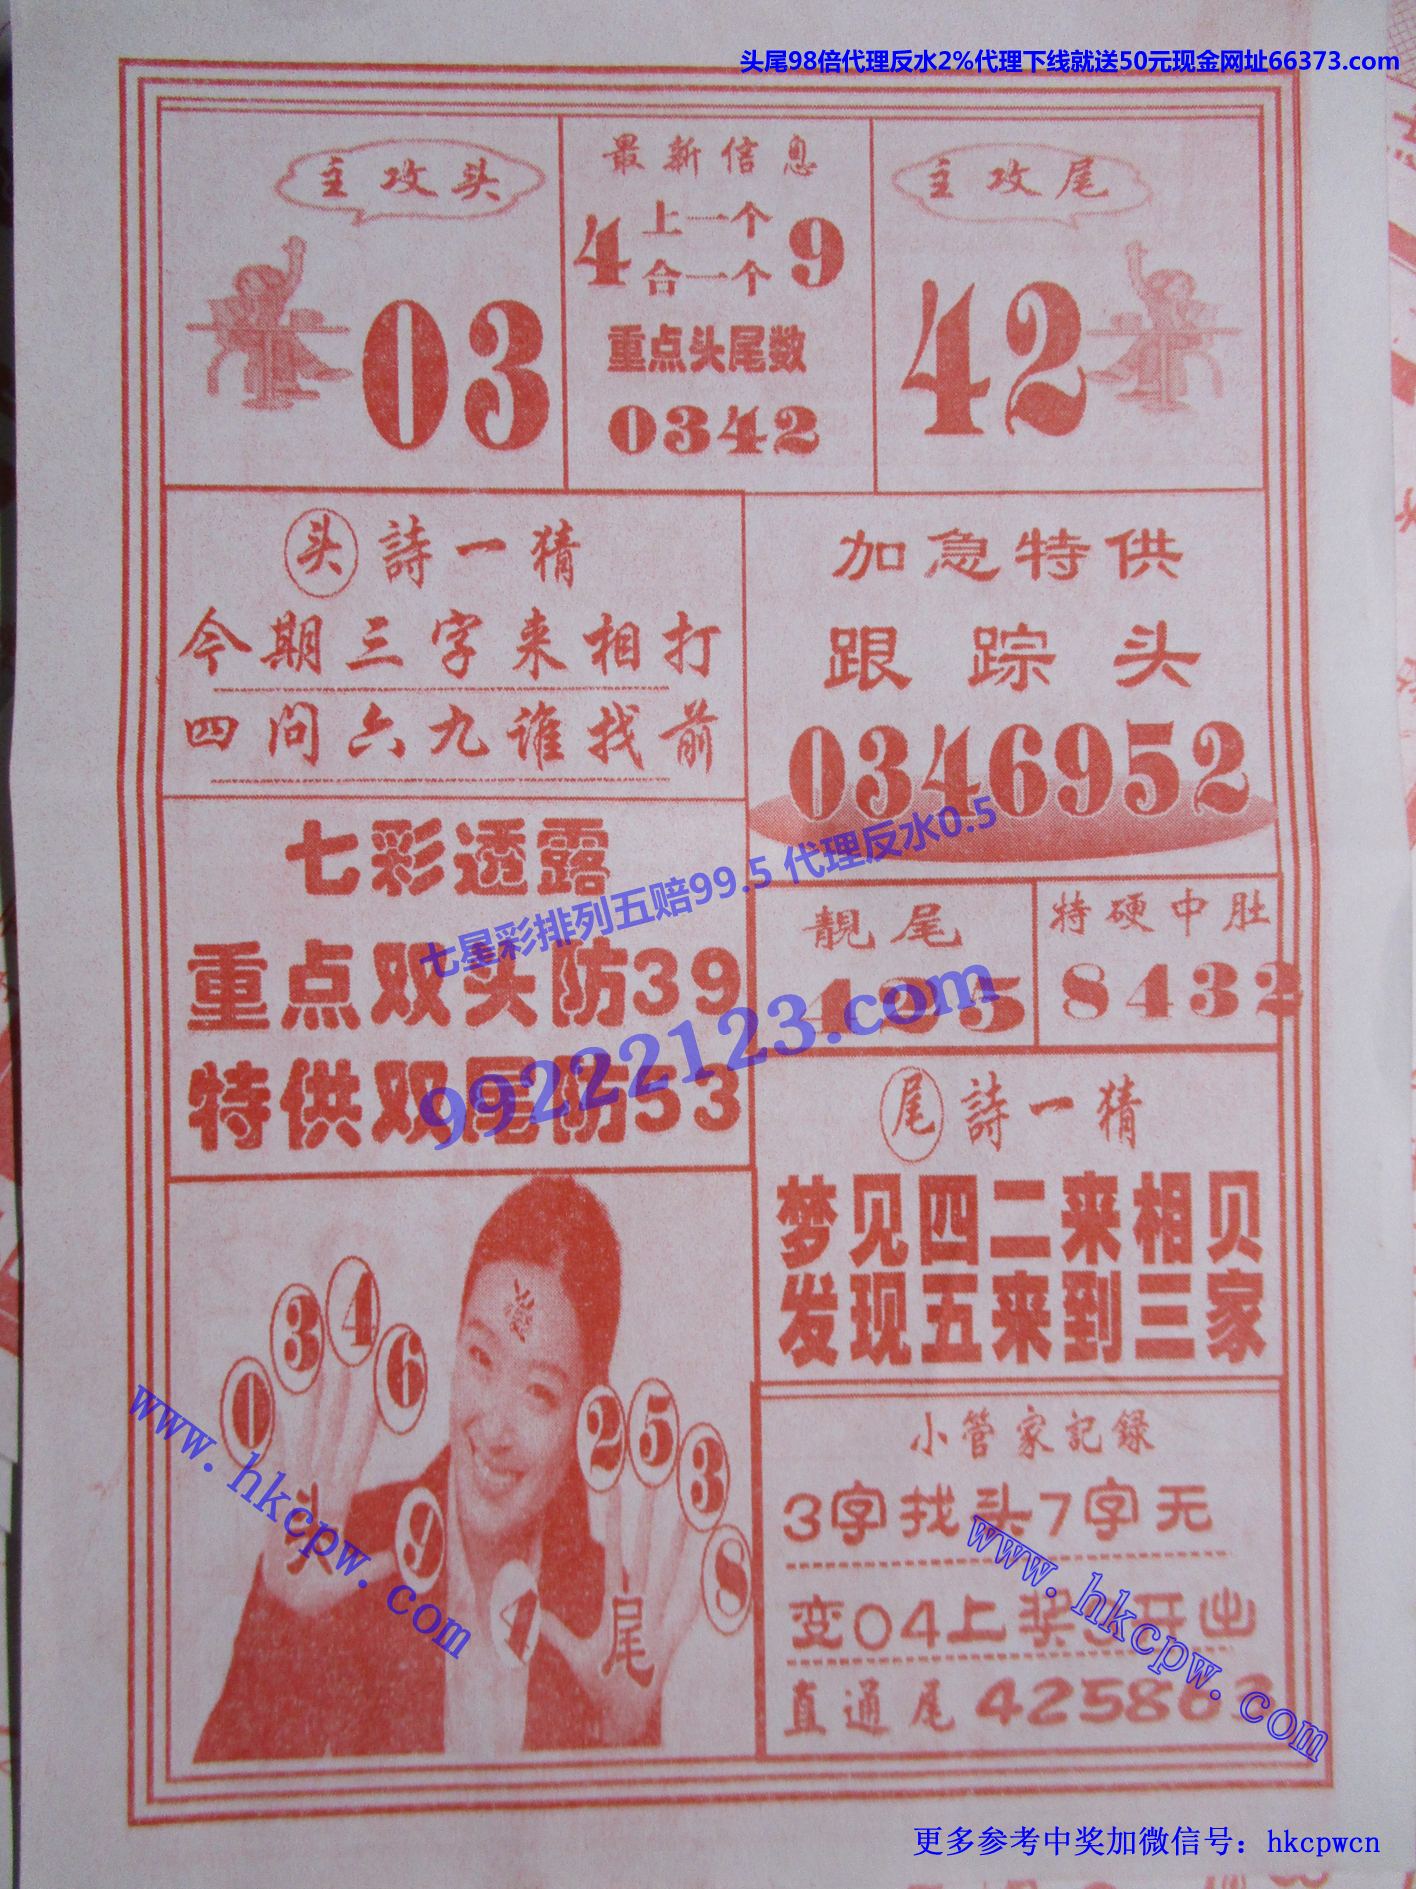 头尾98倍代理反水2%代理下线就送50元现金网址66373.com
主攻头
03
最新信息
4 上一个 9
合一个
重点头尾数
0342
主攻尾
42
头 詩一猜
今期三字来相打
四问六九谁找前
加急特供
跟踪头
0346952
七彩透露
重点双头防39
特供双尾防53
七星彩排列五赔99.5 代理反水0.5
99222123.com
靓尾
425
特硬中肚
8432
尾 詩一猜
梦见四二来相贝
发现五来到三家
0 3 4 6 9
头
4 2 5 3 8
尾
發
www.hkcpw.com
小管家記録
3字找头7字无
变04上奖5开出
直通尾425863
www.hkcpw.com
更多参考中奖加微信号：hkcpwcn